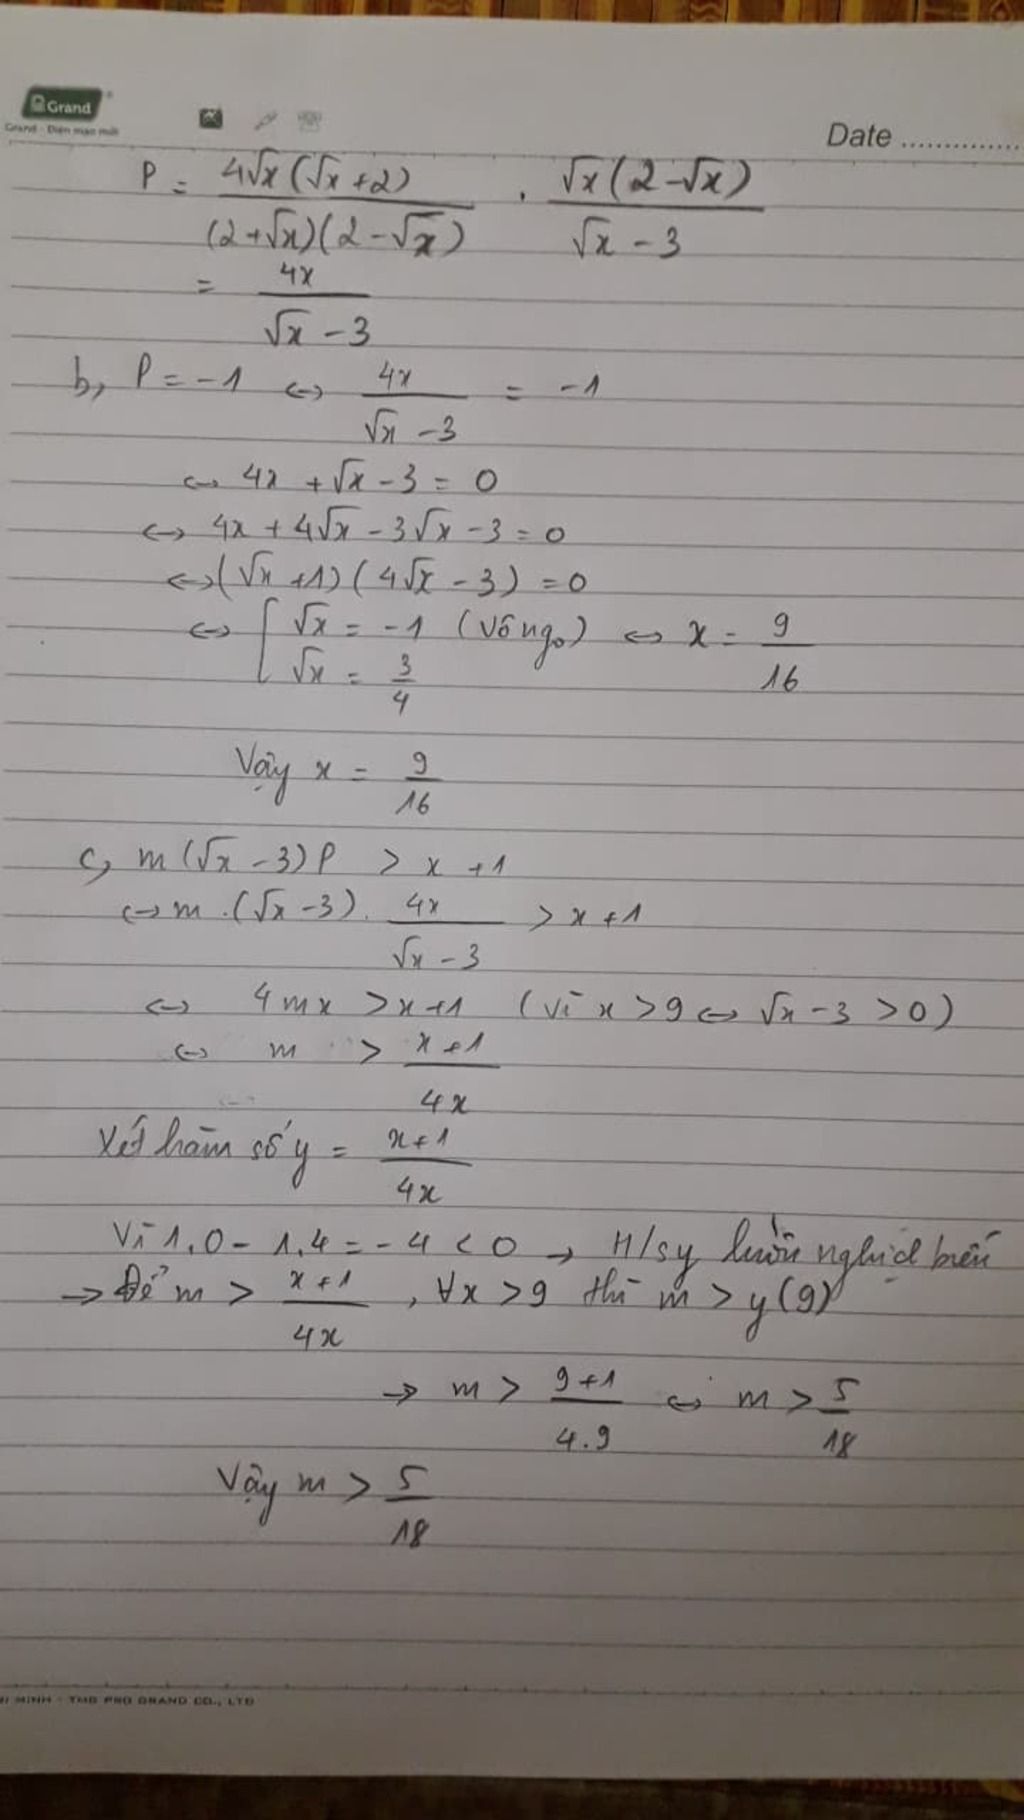 Grand
Grand - Diện mạo mới
Date ..............
P = 4√x(√x+2) / (2+√x)(2-√x) . √x(2-√x) / √x - 3
= 4x / √x - 3
b, P = -1 ⇔ 4x / √x - 3 = -1
⇔ 4x + √x - 3 = 0
⇔ 4x + 4√x - 3√x - 3 = 0
⇔ (√x + 1)(4√x - 3) = 0
⇔ [ √x = -1 (Vô ngo) ⇔ x = 9/16
√x = 3/4
Vậy x = 9/16
c, m(√x - 3)P > x + 1
⇔ m.(√x - 3). 4x / √x - 3 > x + 1
⇔ 4mx > x+1 (vì x > 9 ⇔ √x - 3 > 0)
⇔ m > x+1 / 4x
Xét hàm số y = x+1 / 4x
Vì 1.0 - 1.4 = -4 < 0 → H/s y luôn nghịch biến
→ Để m > x+1 / 4x , ∀x > 9 thì m > y(9)
→ m > 9+1 / 4.9 ⇔ m > 5/18
Vậy m > 5/18
MINH - TMG PRO GRAND CO., LTD